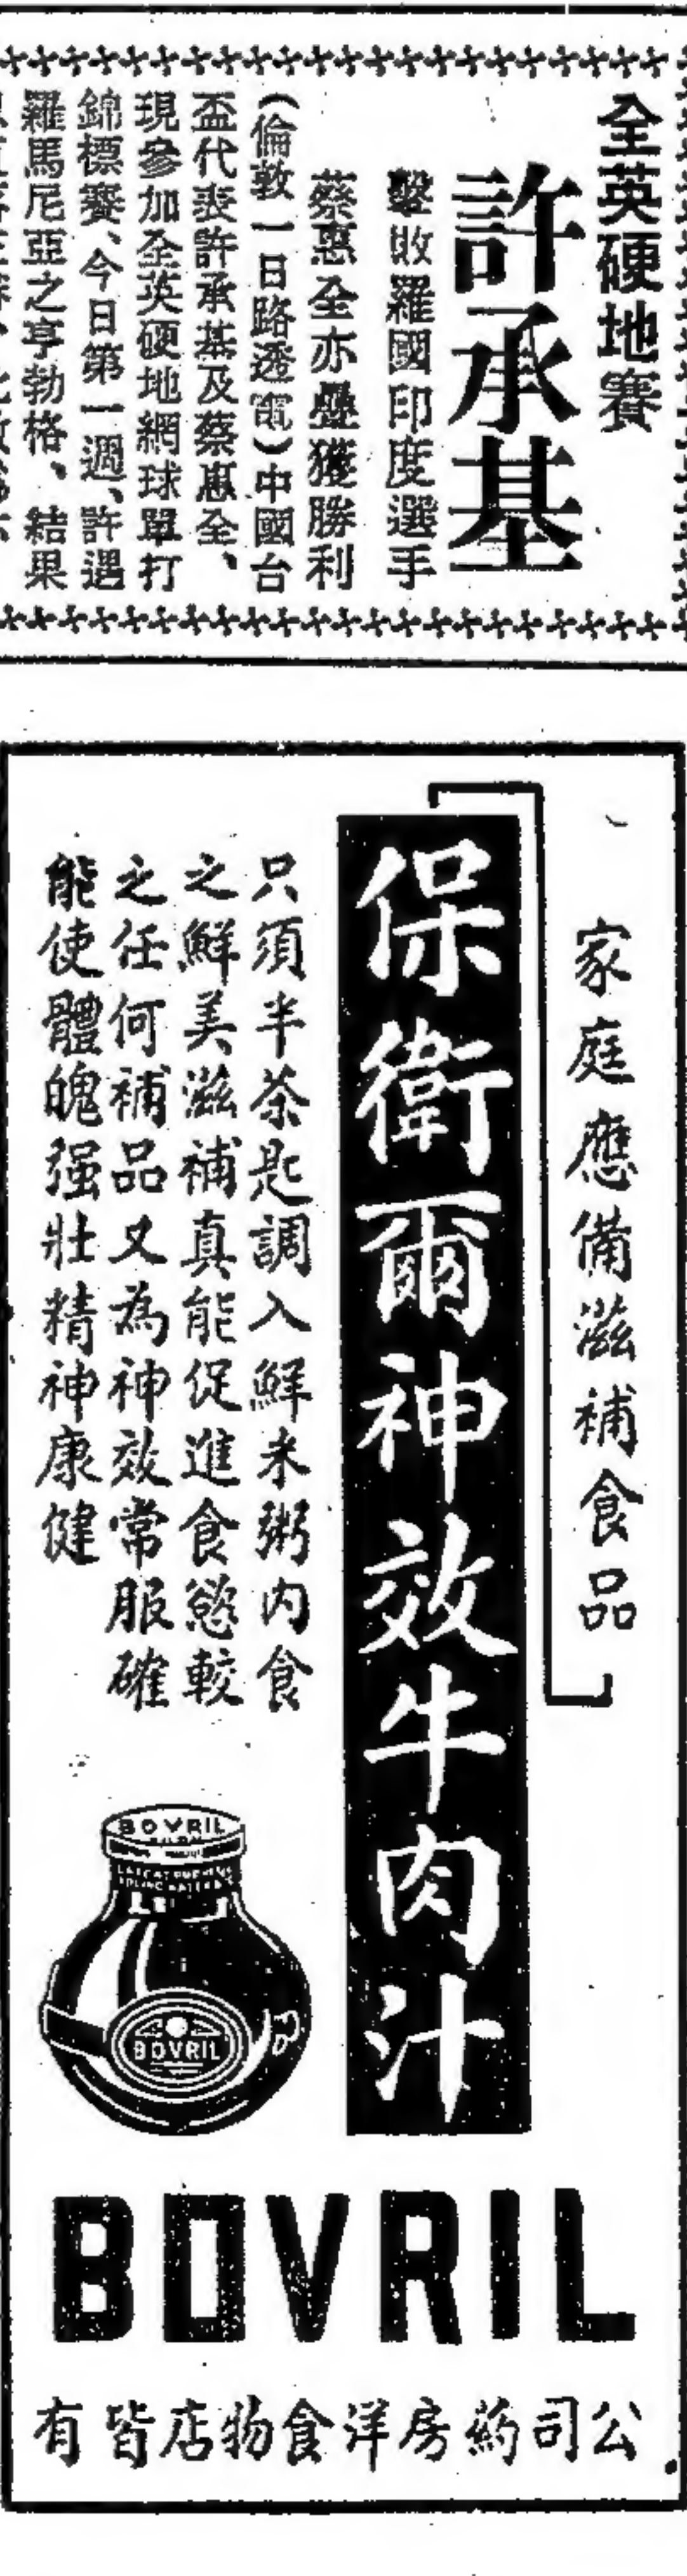 全英硬地賽
許承基
擊敗羅國印度選手
蔡惠全亦疊獲勝利
(倫敦一日路透電)中國台
盃代表許承基及蔡惠全、
現參加全英硬地網球單打
錦標賽、今日第一週、許遇
羅馬尼亞之亨勃格、結果
家庭應備滋補食品
保衛爾神效牛肉汁
只須半茶匙調入鮮米粥內食
之鮮美滋補真能促進食慾較
之任何補品又為神效常服確
能使體魄强壯精神康健
BOVRIL
BOVRIL
BOVRIL
公司藥房洋食物店皆有